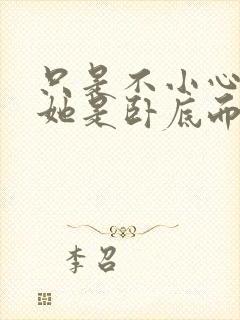 只是不小心
她是卧底而
李召